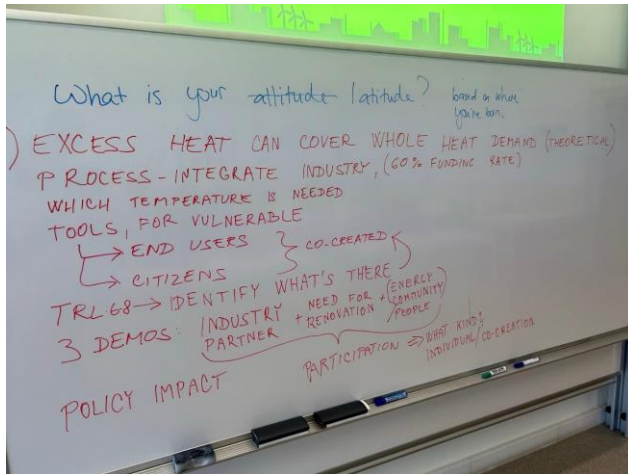 What is your attitude latitude? based on where
you're born.
) EXCESS HEAT CAN COVER WHOLE HEAT DEMAND (THEORETICAL)
PROCESS-INTEGRATE INDUSTRY, (60% FUNDING RATE)
WHICH TEMPERATURE IS NEEDED
TOOLS, FOR VULNERABLE
→ END USERS } CO-CREATED
→ CITIZENS
TRL:68 → IDENTIFY WHAT'S THERE
3 DEMOS: INDUSTRY PARTNER + NEED FOR RENOVATION + (ENERGY COMMUNITY/PEOPLE)
PARTICIPATION ⇒ WHAT KIND?
INDIVIDUAL/CO-CREATION
POLICY IMPACT